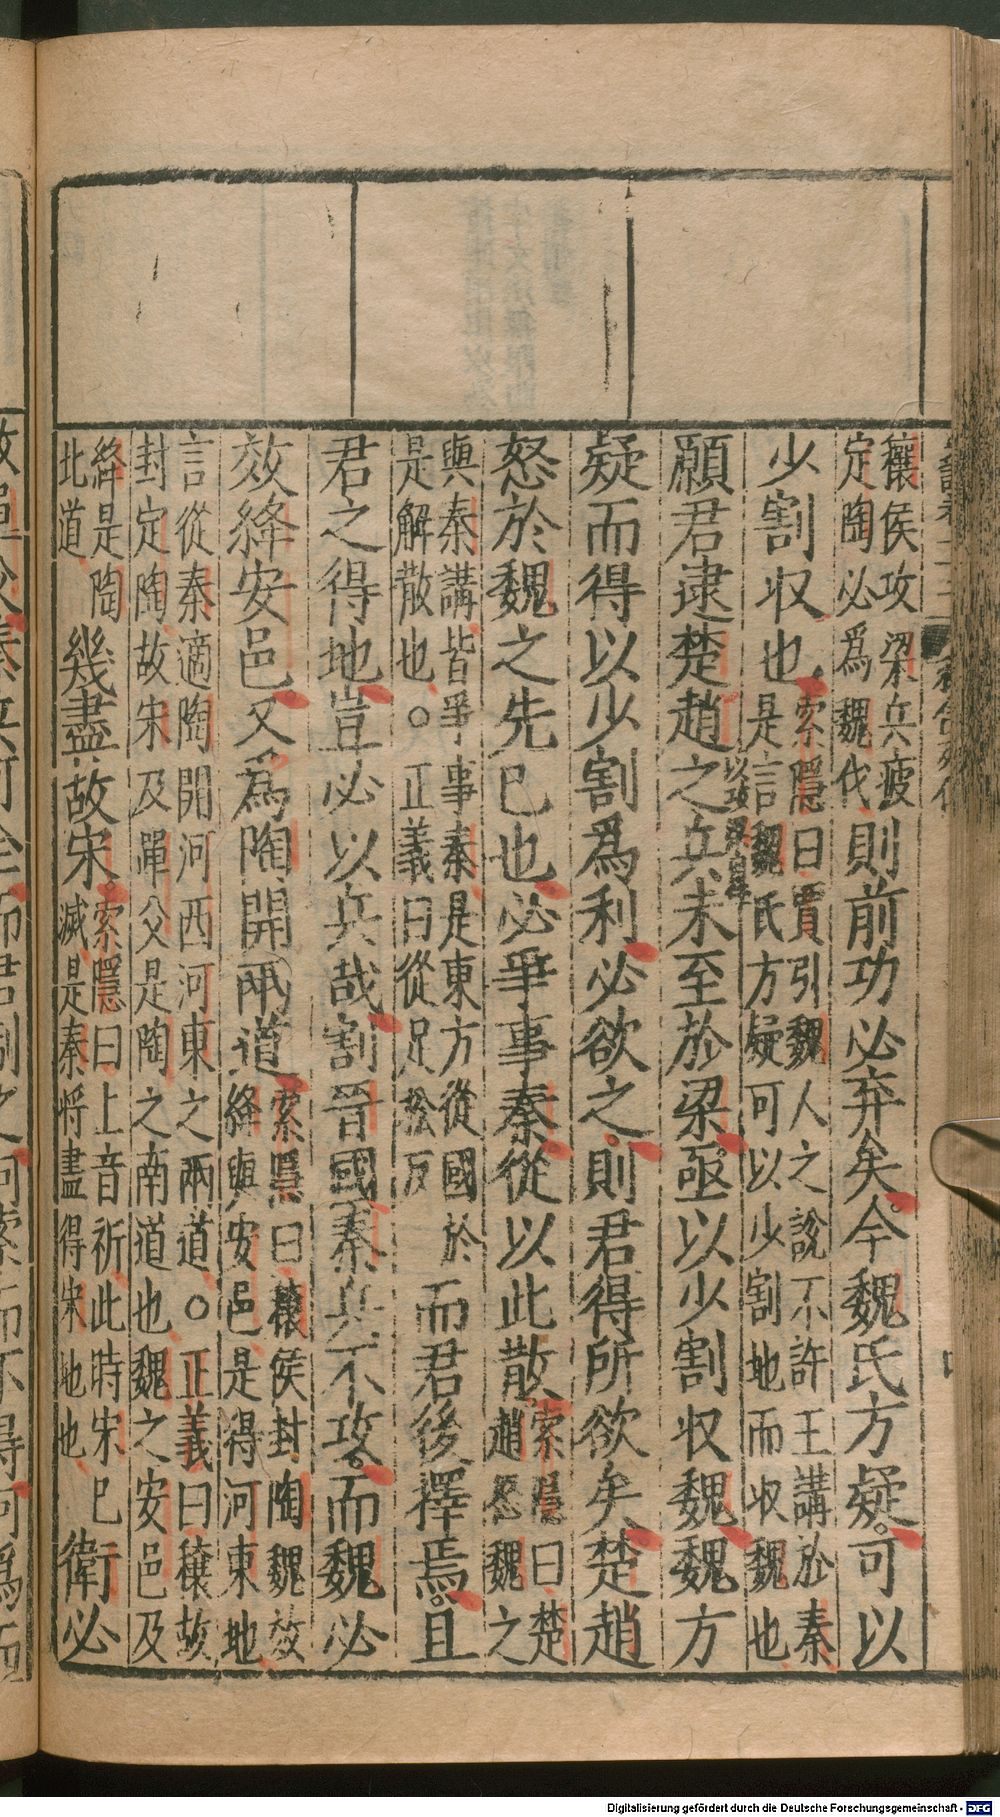 穰侯攻梁兵疲定陶必爲魏伐則前功必弃矣今魏氏方疑可以
少割收也索隱曰賈引魏人之說不許王講於秦是言魏氏方疑可以少割地而收魏也
願君逮楚趙之兵未至於梁亟以少割收魏魏方
疑而得以少割爲利必欲之則君得所欲矣楚趙
怒於魏之先已也必爭事秦從以此散索隱曰楚趙怒魏之
與秦講皆爭事秦是東方從國於是解散也○正義曰從足松反而君後擇焉且
君之得地豈必以兵哉割晉國秦兵不攻而魏必
效絳安邑又爲陶開兩道索隱曰穰侯封陶魏效絳與安邑是得河東地
言從秦適陶開河西河東之兩道○正義曰穰故封定陶故宋及單父是陶之南道也魏之安邑及
絳是陶北道幾盡故宋索隱曰上音祈此時宋已滅是秦將盡得宋地也衛必
Digitalisierung gefördert durch die Deutsche Forschungsgemeinschaft - DFG